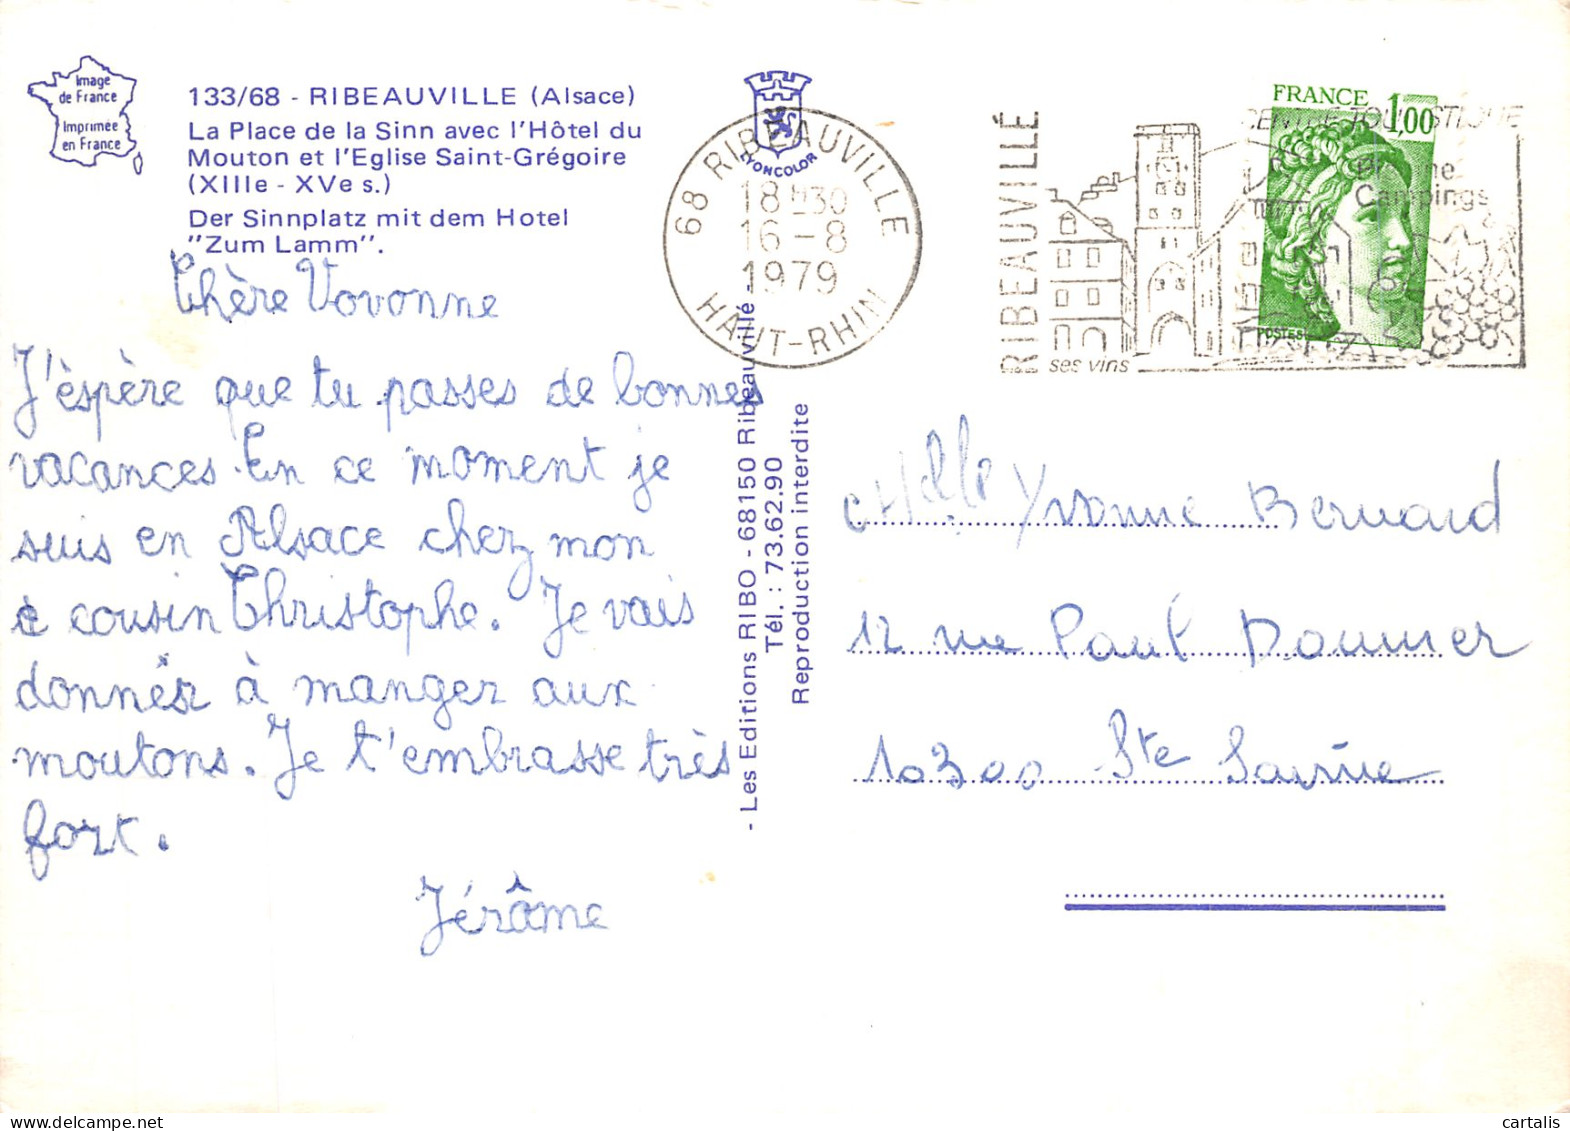 Image
de France
Imprimée
en France
133/68 - RIBEAUVILLE (Alsace)
La Place de la Sinn avec l'Hôtel du
Mouton et l'Eglise Saint-Grégoire
(XIIIe - XVe s.)
Der Sinnplatz mit dem Hotel
"Zum Lamm".
Chère Vovonne
J'éspère que tu passes de bonnes
vacances. En ce moment je
suis en Alsace chez mon
c cousin Christophe. Je vais
donner à manger aux
moutons. Je t'embrasse très
fort.
Jérôme
LYONCOLOR
- Les Editions RIBO - 68150 Ribeauvillé -
Tél. : 73.62.90
Reproduction interdite
68 RIBEAUVILLE
18H30
16-8
1979
HAUT-RHIN
RIBEAUVILLÉ
CENTRE TOURISTIQUE
Piscine
Campings
ses vins
FRANCE 1,00
POSTES
Melle Yvonne Bernard
12 rue Paul Doumer
10300 Ste Savine
cartalis